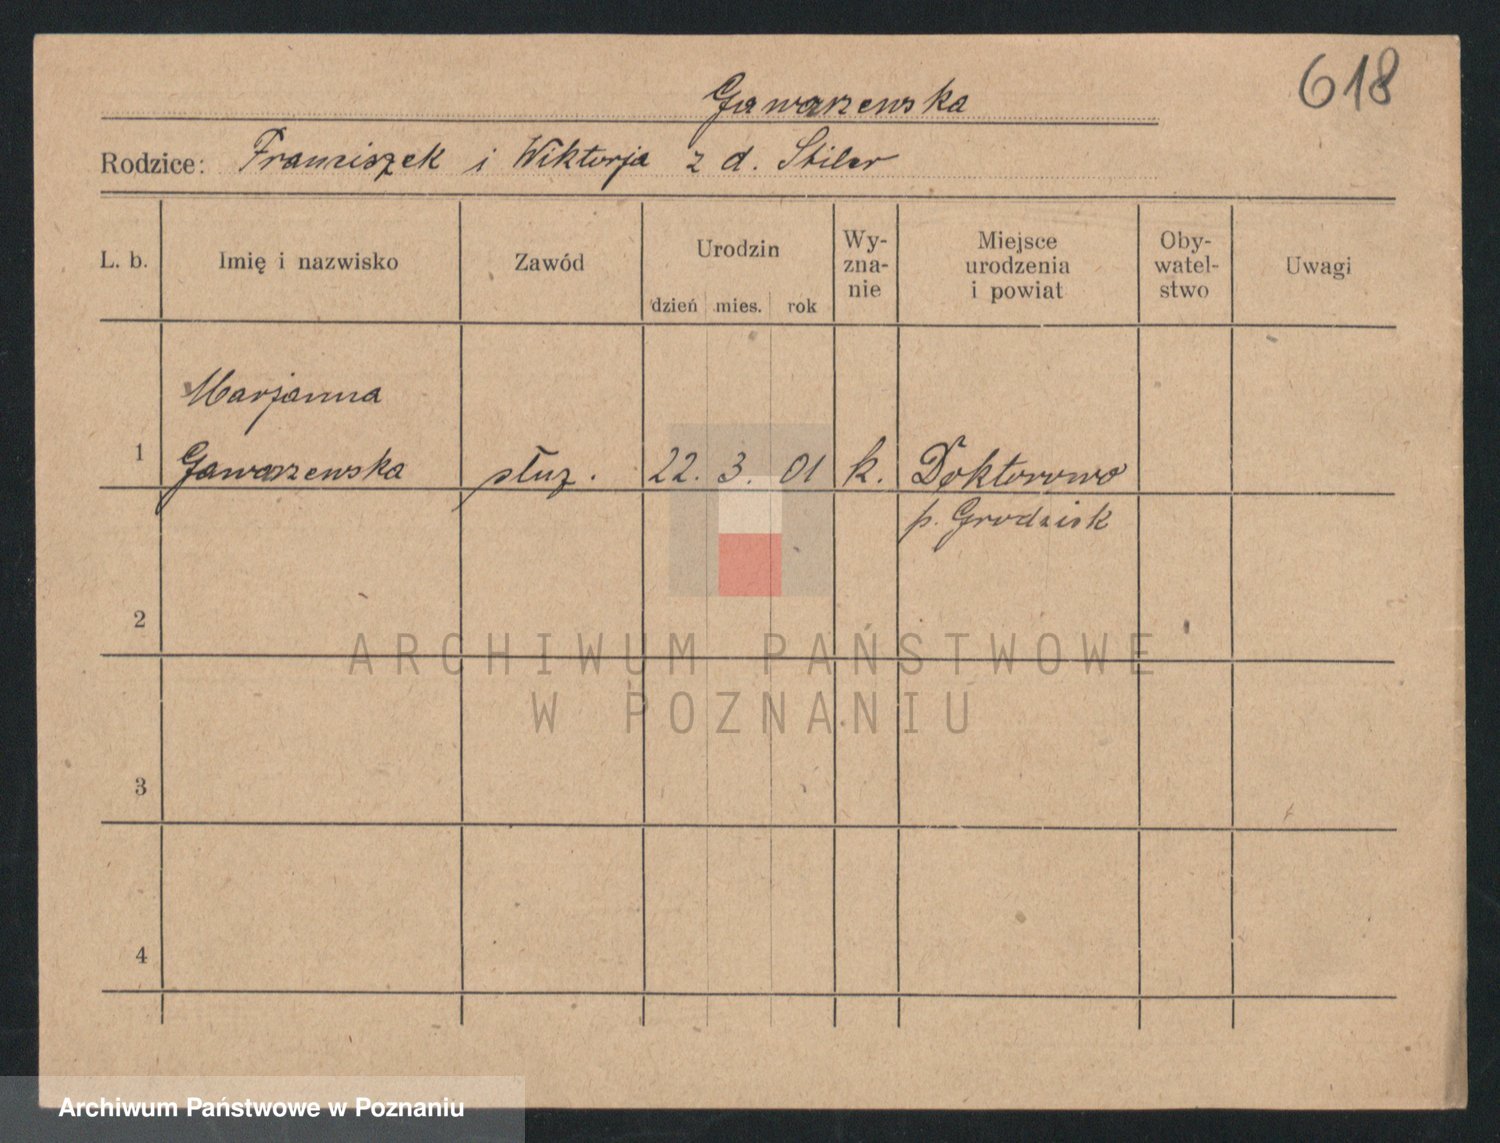 618
Gawarzewska
Rodzice: Franciszek i Wiktorja z d. Stiler
L. b.
Imię i nazwisko
Zawód
Urodzin
dzień mies. rok
Wy-
zna-
nie
Miejsce
urodzenia
i powiat
Oby-
watel-
stwo
Uwagi
Marjanna
1 Gawarzewska służ. 22. 3. 01 k. Doktorowo
p. Grodzisk
2
3
4
ARCHIWUM PAŃSTWOWE
W POZNANIU
Archiwum Państwowe w Poznaniu